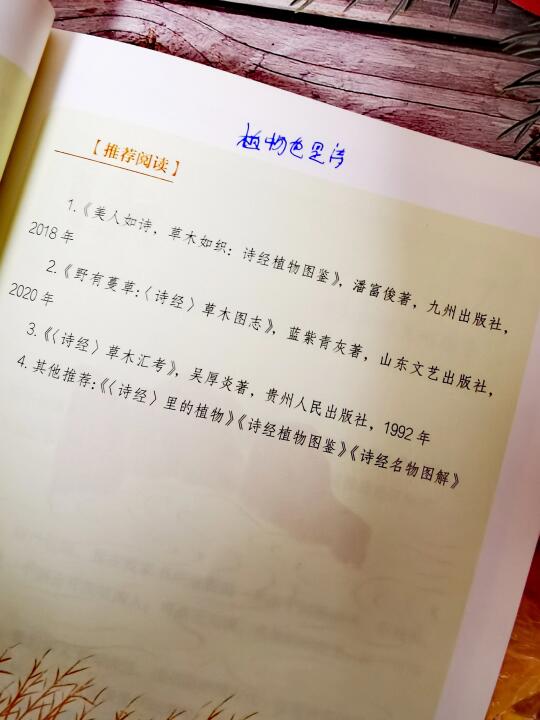 植物也是诗
【推荐阅读】
1.《美人如诗，草木如织：诗经植物图鉴》，潘富俊著，九州出版社，
2018 年
2.《野有蔓草:〈诗经〉草木图志》，蓝紫青灰著，山东文艺出版社，
2020 年
3.《〈诗经〉草木汇考》，吴厚炎著，贵州人民出版社，1992 年
4. 其他推荐:《〈诗经〉里的植物》《诗经植物图鉴》《诗经名物图解》